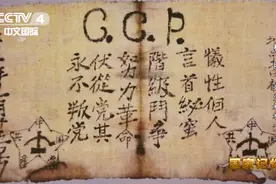 CCTV 4
中文国际
C.C.P.
犧牲個人
言首秘蜜
階級鬥爭
努力革命
伏從党其
永不叛党
国家记忆